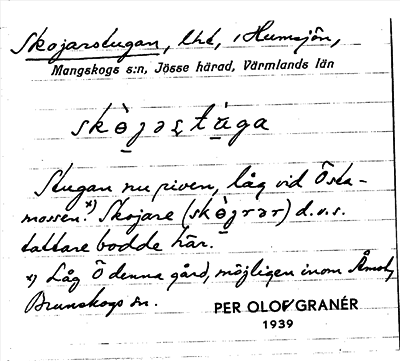 Skojarstugan, lht, i Humsjön,
Mangskogs s:n, Jösse härad, Värmlands län
skò̱jəʂtù̱ga
Stugan nu riven, låg vid Östa-
mossen.ˣ⁾ Skojare (skò̱jər) d.v.s.
tattare bodde här.
x) Låg Ö denna gård, möjligen inom
Brunskogs sn.
PER OLOF GRANÉR
1939